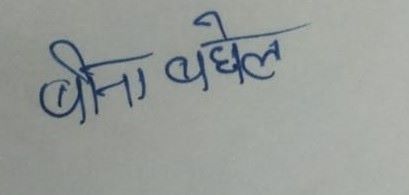 बीना बघेल